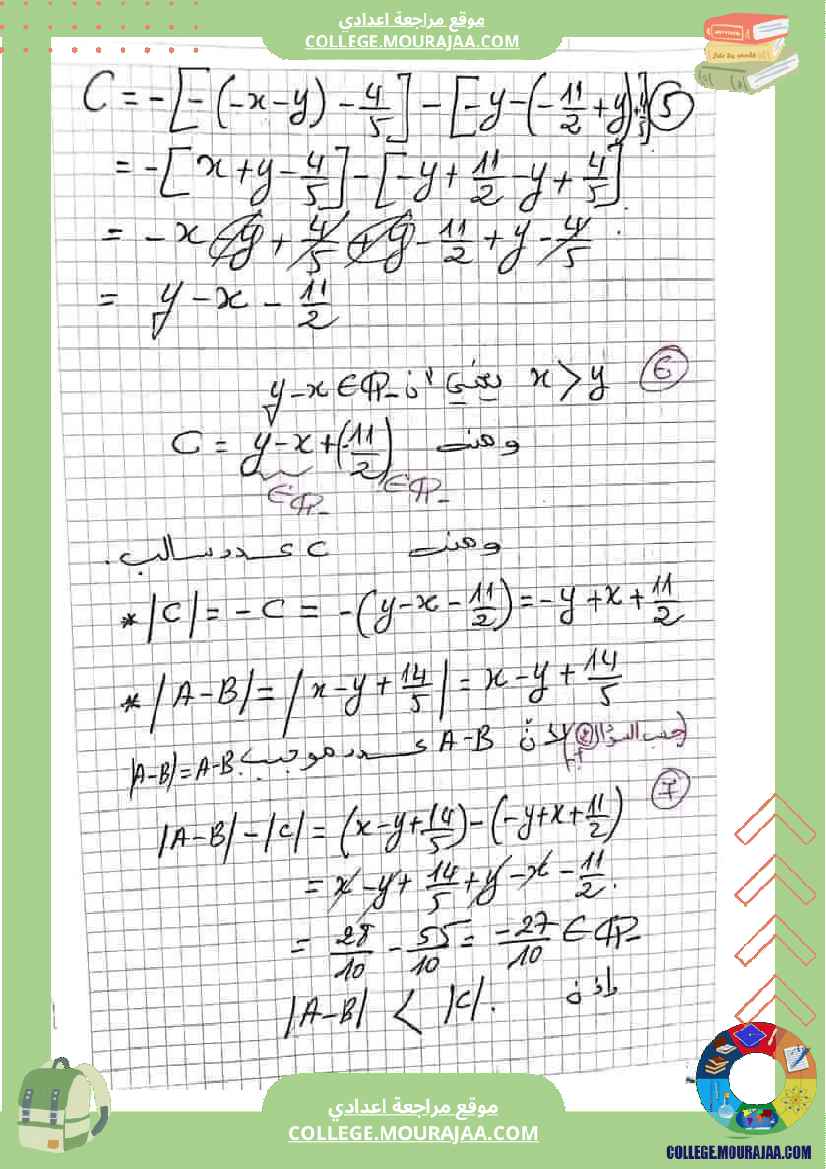 موقع مراجعة اعدادي
COLLEGE.MOURAJAA.COM
C = -[-(-x-y) - 4/5] - [-y-(-11/2+y)+4/5] ⑤
= -[x+y-4/5] - [-y+11/2-y+4/5]
= -x-y+4/5+y-11/2+y-4/5
= y-x-11/2
⑥ x>y يعني أن y-x∈ℚ₋
ومنه C = y-x+(-11/2)
∈ℚ₋ ∈ℚ₋
ومنه C عدد سالب.
* |C| = -C = -(y-x-11/2) = -y+x+11/2
* |A-B| = |x-y+14/5| = x-y+14/5
(حسب السؤال) لأن A-B عدد موجب |A-B|=A-B.
⑦
|A-B|-|C| = (x-y+14/5)-(-y+x+11/2)
= x-y+14/5+y-x-11/2.
= 28/10 - 55/10 = -27/10 ∈ℚ₋
إذن |A-B| < |C|.
موقع مراجعة اعدادي
COLLEGE.MOURAJAA.COM
COLLEGE.MOURAJAA.COM